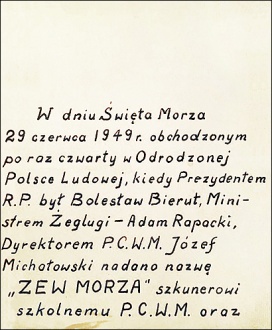 W dniu Święta Morza
29 czerwca 1949 r. obchodzonym
po raz czwarty w Odrodzonej
Polsce Ludowej, kiedy Prezydentem
R.P. był Bolesław Bierut, Mini-
strem Żeglugi – Adam Rapacki,
Dyrektorem P.C.W.M. Józef
Michałowski nadano nazwę
„ZEW MORZA" szkunerowi
szkolnemu P.C.W.M. oraz